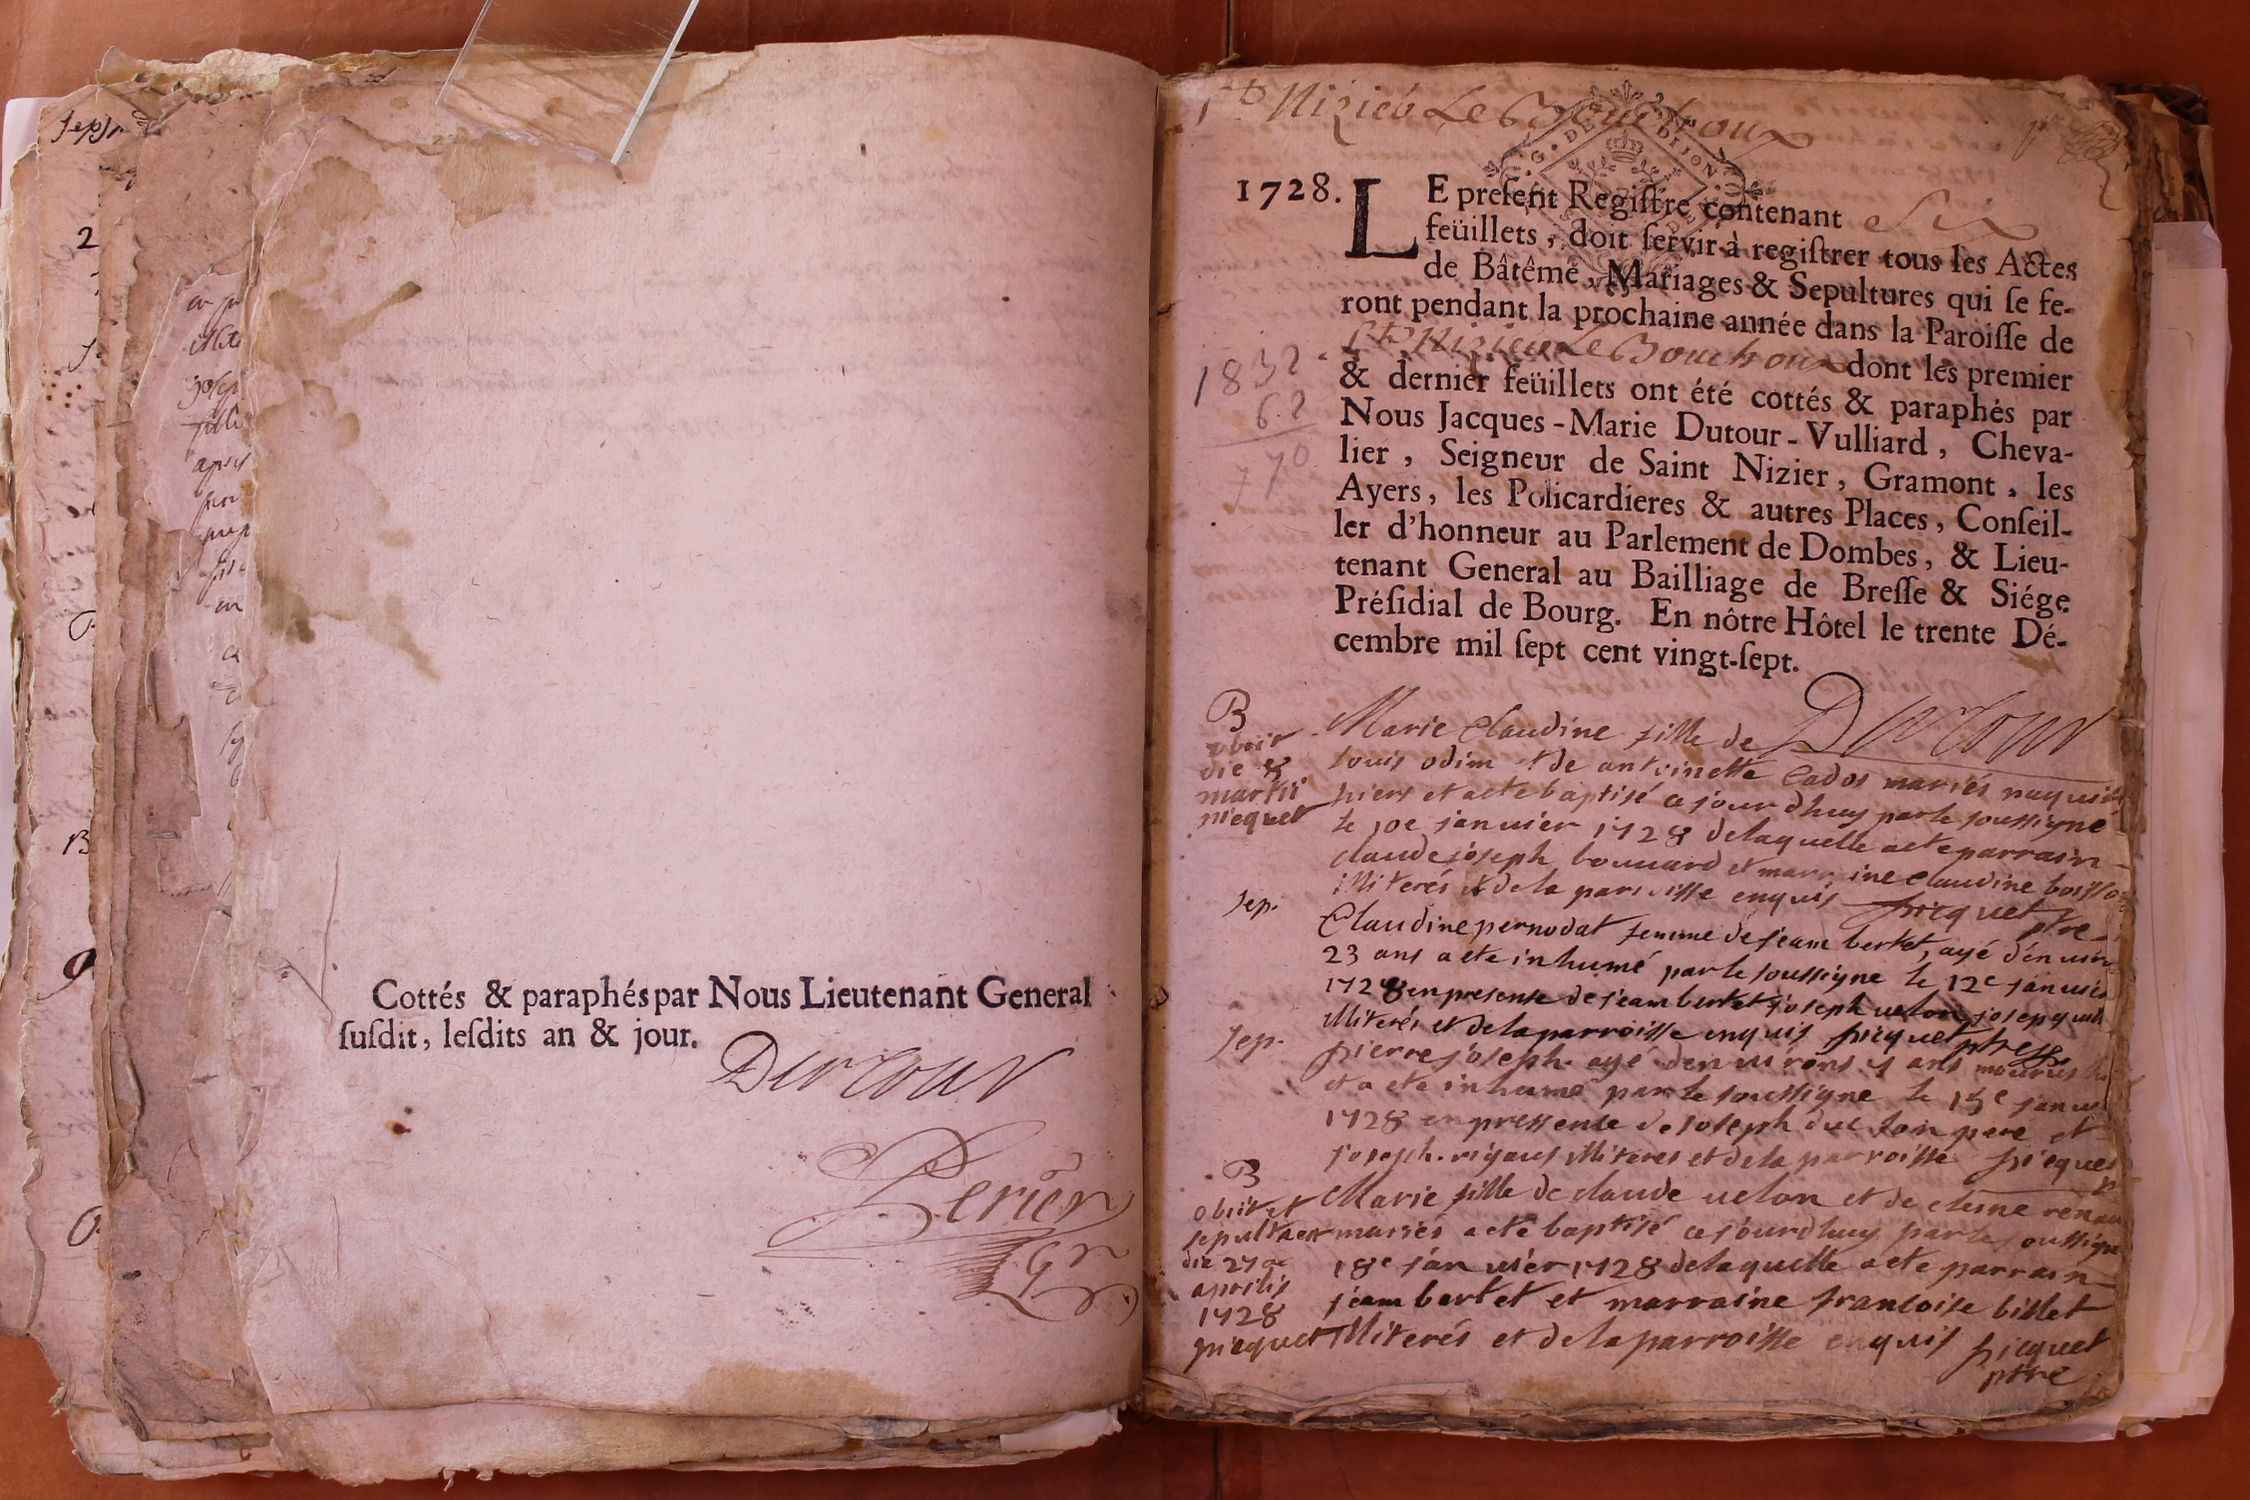 Cottés & paraphés par Nous Lieutenant General
ſuſdit, leſdits an & jour.
Dutour
Perier
St Nizier Le Bouchoux
G. DE DIJON
1728.
LE preſent Regiſtre contenant Six
feüillets, doit ſervir à regiſtrer tous les Actes
de Bâtême, Mariages & Sepultures qui ſe fe-
ront pendant la prochaine année dans la Paroiſſe de
St Nizier Le Bouchoux dont les premier
& dernier feüillets ont été cottés & paraphés par
Nous Jacques-Marie Dutour-Vulliard, Cheva-
lier, Seigneur de Saint Nizier, Gramont, les
Ayers, les Policardieres & autres Places, Conſeil-
ler d'honneur au Parlement de Dombes, & Lieu-
tenant General au Bailliage de Breſſe & Siége
Préſidial de Bourg. En nôtre Hôtel le trente Dé-
cembre mil ſept cent vingt-ſept.
Dutour
183
62
770
B
obiit
die 8
martii
piequet
Marie Claudine fille de
louis odim et de antoinette Cados mariés naquist
hiers et a ete baptisé ce jourdhuy par le soussigné
le 10e januier 1728 de laquelle a ete parrain
claude joseph bouuard et marraine claudine
illiterés et de la parroisse enquis picquet ptre
Sep.
Claudine pernodat femme de jean bertet, agé denuiron
23 ans a ete inhumé par le soussigne le 12e januier
1728 en presense de jean bertet joseph uelon
illiterés et de la parroisse enquis picquet ptre
Sep.
pierre joseph agé denuirons ans
et a ete inhumé par le soussigne le 15e
1728 en pressense de joseph duc son pere et
joseph rigaus illiteres et de la parroisse picquet
B
obiit et
sepulta est
die 27
aprilis
1728
piequet
Marie fille de claude uelon et de
mariés a ete baptisé ce jourdhuy par le soussigné
18e januiér 1728 de laquelle a ete parrain
jean bertet et marraine francoise billet
illiterés et de la parroisse enquis picquet
ptre